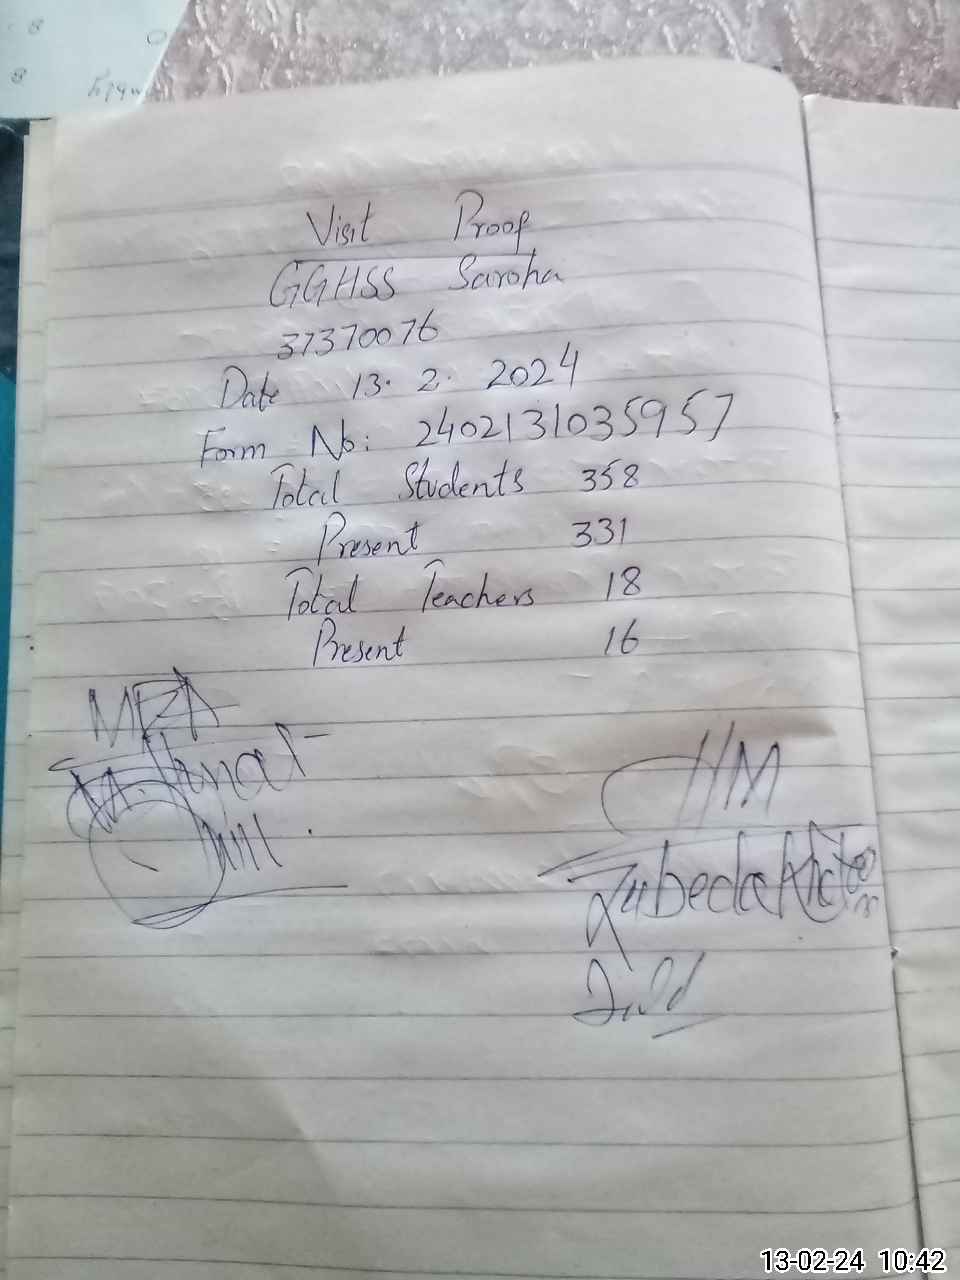 Visit Proof
GGHSS Saroha
37370076
Date 13. 2. 2024
Form No: 2402131035957
Total Students 358
Present 331
Total Teachers 18
Present 16
MEA
HM
Zubeda Khatoon
13-02-24 10:42